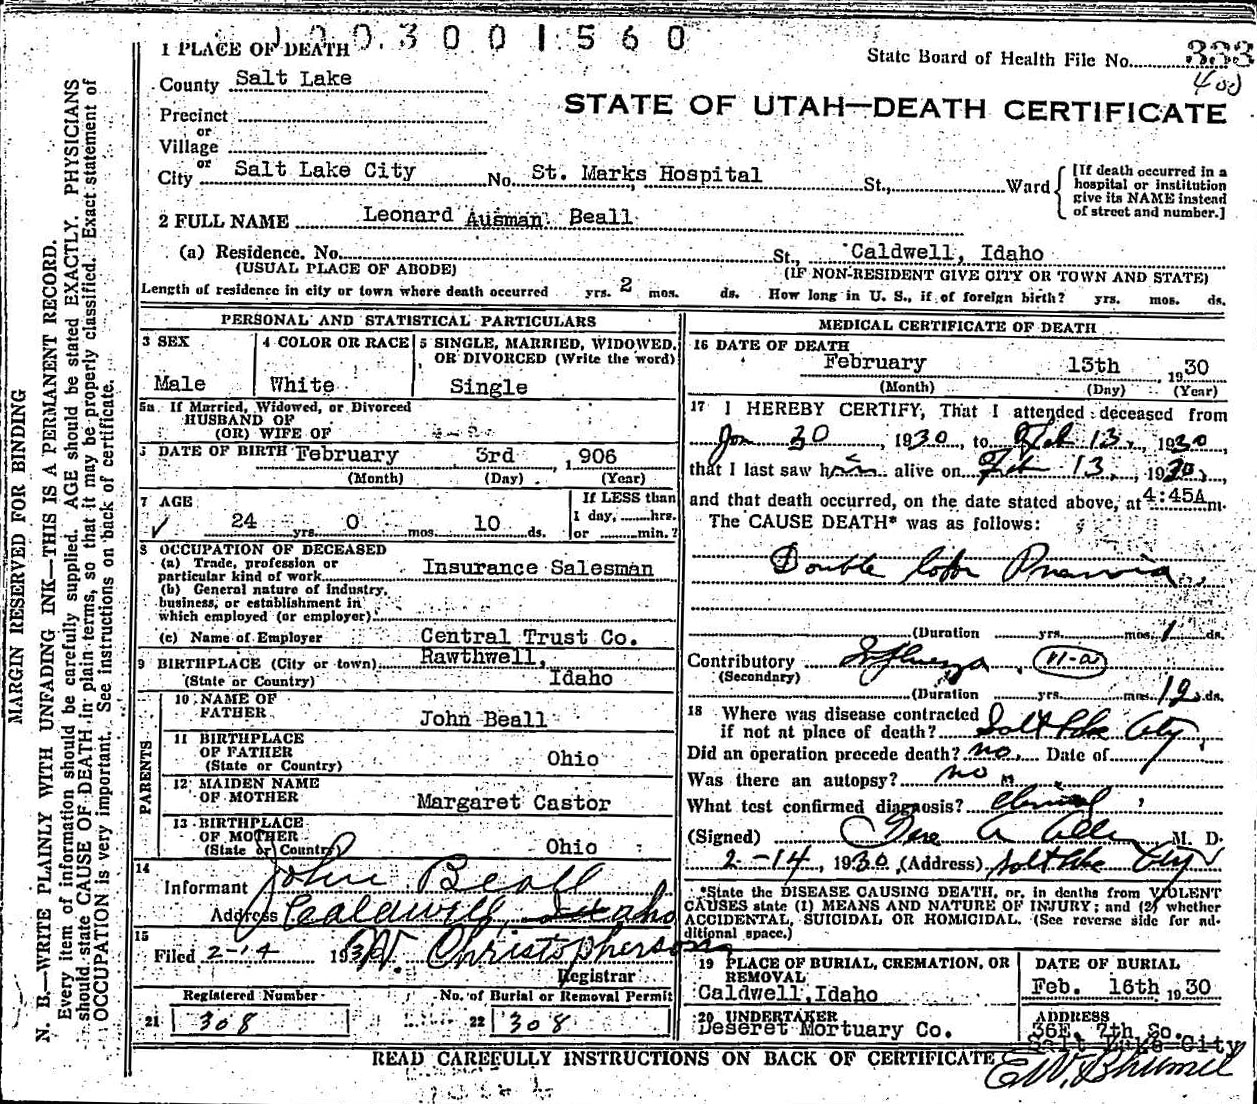 1003001560
State Board of Health File No. 333
400
STATE OF UTAH—DEATH CERTIFICATE
1 PLACE OF DEATH
County Salt Lake
Precinct
or
Village
or
City Salt Lake City No. St. Marks Hospital St., Ward
[If death occurred in a
hospital or institution
give its NAME instead
of street and number.]
2 FULL NAME Leonard Ausman Beall
(a) Residence. No. St., Caldwell, Idaho
(USUAL PLACE OF ABODE) (IF NON-RESIDENT GIVE CITY OR TOWN AND STATE)
Length of residence in city or town where death occurred yrs. 2 mos. ds. How long in U. S., if of foreign birth? yrs. mos. ds.
PERSONAL AND STATISTICAL PARTICULARS
3 SEX
Male
4 COLOR OR RACE
White
5 SINGLE, MARRIED, WIDOWED,
OR DIVORCED (Write the word)
Single
5a If Married, Widowed, or Divorced
HUSBAND OF
(OR) WIFE OF
DATE OF BIRTH February 3rd 1906
(Month) (Day) (Year)
7 AGE
24 yrs. 0 mos. 10 ds.
If LESS than
1 day, hrs.
or min.?
8 OCCUPATION OF DECEASED
(a) Trade, profession or
particular kind of work Insurance Salesman
(b) General nature of industry,
business, or establishment in
which employed (or employer)
(c) Name of Employer Central Trust Co.
9 BIRTHPLACE (City or town) Rawthwell,
(State or Country) Idaho
PARENTS
10 NAME OF
FATHER John Beall
11 BIRTHPLACE
OF FATHER
(State or Country) Ohio
12 MAIDEN NAME
OF MOTHER Margaret Castor
13 BIRTHPLACE
OF MOTHER
(State or Country) Ohio
14
Informant John Beall
Address Caldwell, Idaho
15
Filed 2-14 193 W. Christopherson
Registrar
Registered Number
21 308
No. of Burial or Removal Permit
22 308
MEDICAL CERTIFICATE OF DEATH
16 DATE OF DEATH
February 13th 1930
(Month) (Day) (Year)
17 I HEREBY CERTIFY, That I attended deceased from
Jan 30, 1930, to Feb 13, 1930
that I last saw him alive on Feb 13, 1930,
and that death occurred, on the date stated above, at 4:45A m.
The CAUSE DEATH* was as follows:
Double lobar
(Duration yrs. mos. ds.
Contributory Influenza 11-a
(Secondary)
(Duration yrs. mos. 12 ds.
18 Where was disease contracted
if not at place of death? Salt Lake City
Did an operation precede death? no. Date of
Was there an autopsy? no
What test confirmed diagnosis? Clinical
(Signed) M. D.
2-14, 1930, (Address) Salt Lake City
*State the DISEASE CAUSING DEATH, or, in deaths from VIOLENT
CAUSES state (1) MEANS AND NATURE OF INJURY; and (2) whether
ACCIDENTAL, SUICIDAL OR HOMICIDAL. (See reverse side for ad-
ditional space.)
19 PLACE OF BURIAL, CREMATION, OR
REMOVAL
Caldwell, Idaho
DATE OF BURIAL
Feb. 16th 1930
20 UNDERTAKER
Deseret Mortuary Co.
ADDRESS
36E. 7th So.
Salt Lake City
READ CAREFULLY INSTRUCTIONS ON BACK OF CERTIFICATE
MARGIN RESERVED FOR BINDING
N. B.—WRITE PLAINLY WITH UNFADING INK—THIS IS A PERMANENT RECORD.
Every item of information should be carefully supplied. AGE should be stated EXACTLY. PHYSICIANS
should state CAUSE OF DEATH in plain terms, so that it may be properly classified. Exact statement of
OCCUPATION is very important. See instructions on back of certificate.